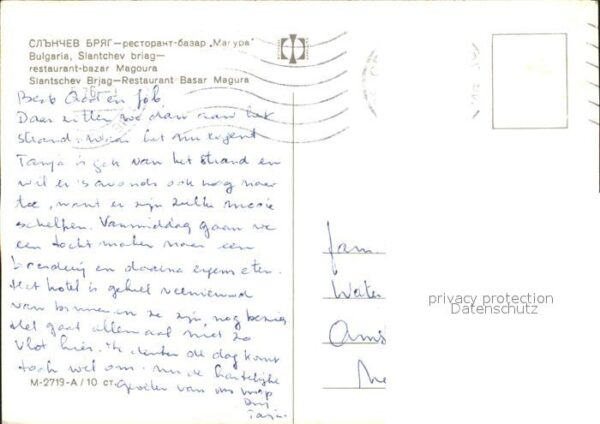 СЛЪНЧЕВ БРЯГ—ресторант-базар „Магура"
Bulgaria, Slantchev briag—
restaurant-bazar Magoura
Slantschev Brjag—Restaurant Basar Magura
Beste en Job,
Daar zitten we dan aan het
strand, waar het nu regent
Tanja is gek van het strand en
wil er 's avonds ook nog naar
toe, want er zijn zulke mooie
schelpen. Vanmiddag gaan we
een tocht maken naar een
boerderij en daarna eten.
Het hotel is geheel vernieuwd
van binnen en ze zijn nog bezig
Het gaat allemaal niet zo
vlot hier. de dag komt
toch wel om. nu de hartelijke
Groeten van ons
Tanja
M-2719-A/10 ст.
fam
Wate
Ams
Ne
privacy protection
Datenschutz